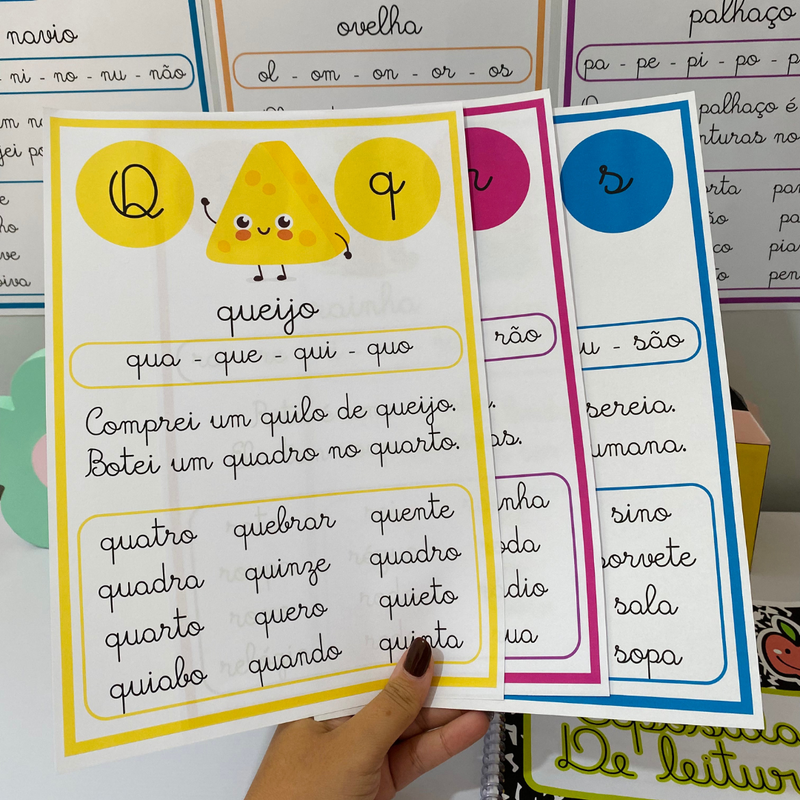 navio
ni - no - nu - não
ovelha
ol - om - on - or - os
palhaço
pa - pe - pi - po - p
palhaço é
Q q
queijo
qua - que - qui - quo
Comprei um quilo de queijo.
Botei um quadro no quarto.
quatro quebrar quente
quadra quinze quadro
quarto quero quieto
quiabo quando quinta
rão
s
são
sereia.
umana.
sino
sorvete
sala
sopa
De leitur